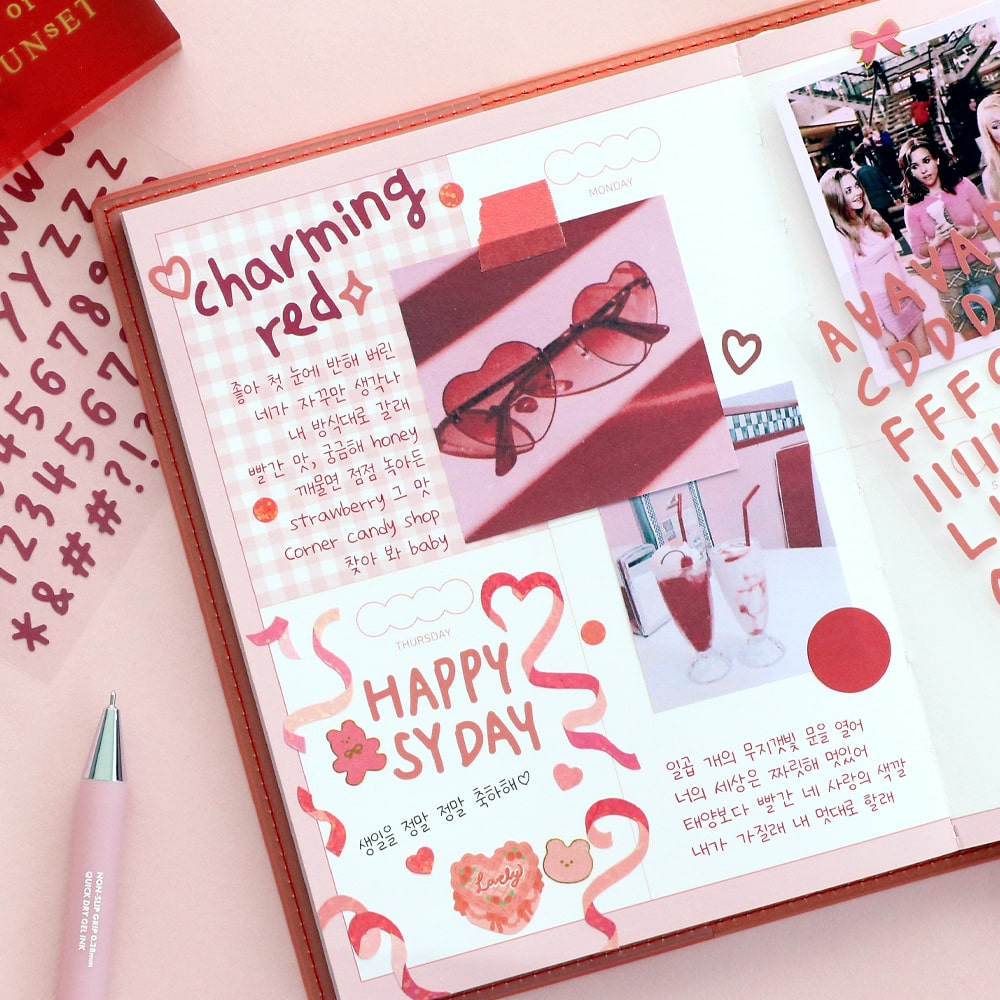 of
SUNSET
MONDAY
charming
red
좋아 첫 눈에 반해 버린
네가 자꾸만 생각나
내 방식대로 갈래
빨간 맛, 궁금해 honey
깨물면 점점 녹아든
strawberry 그 맛
corner candy shop
찾아 봐 baby
THURSDAY
HAPPY
SY DAY
생일을 정말 정말 축하해♡
Lovely
일곱 개의 무지갯빛 문을 열어
너의 세상은 짜릿해 멋있어
태양보다 빨간 네 사랑의 색깔
내가 가질래 내 멋대로 할래
NON-SLIP GRIP 0.38mm
QUICK DRY GEL INK